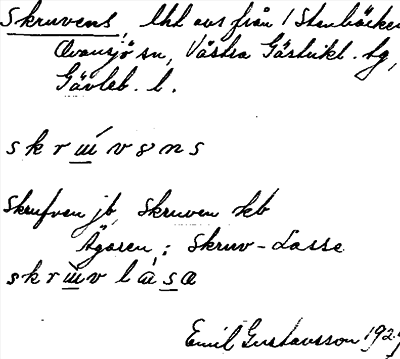 Skruvens, lhl avs från 1 Stenbäcken
Ovansjö sn, Västra Gästrikl. tg,
Gävleb. l.
skrɯ́vɘns
Skrufven jb, Skruven kb
Ägaren: Skruv-Lasse
skrɯ̀vlàsa
Emil Gustavsson 1927